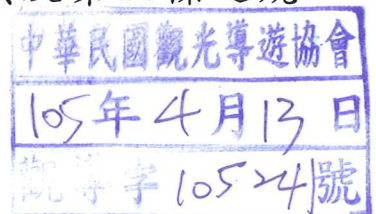 中華民國觀光導遊協會
105年4月13日
觀導字105241號